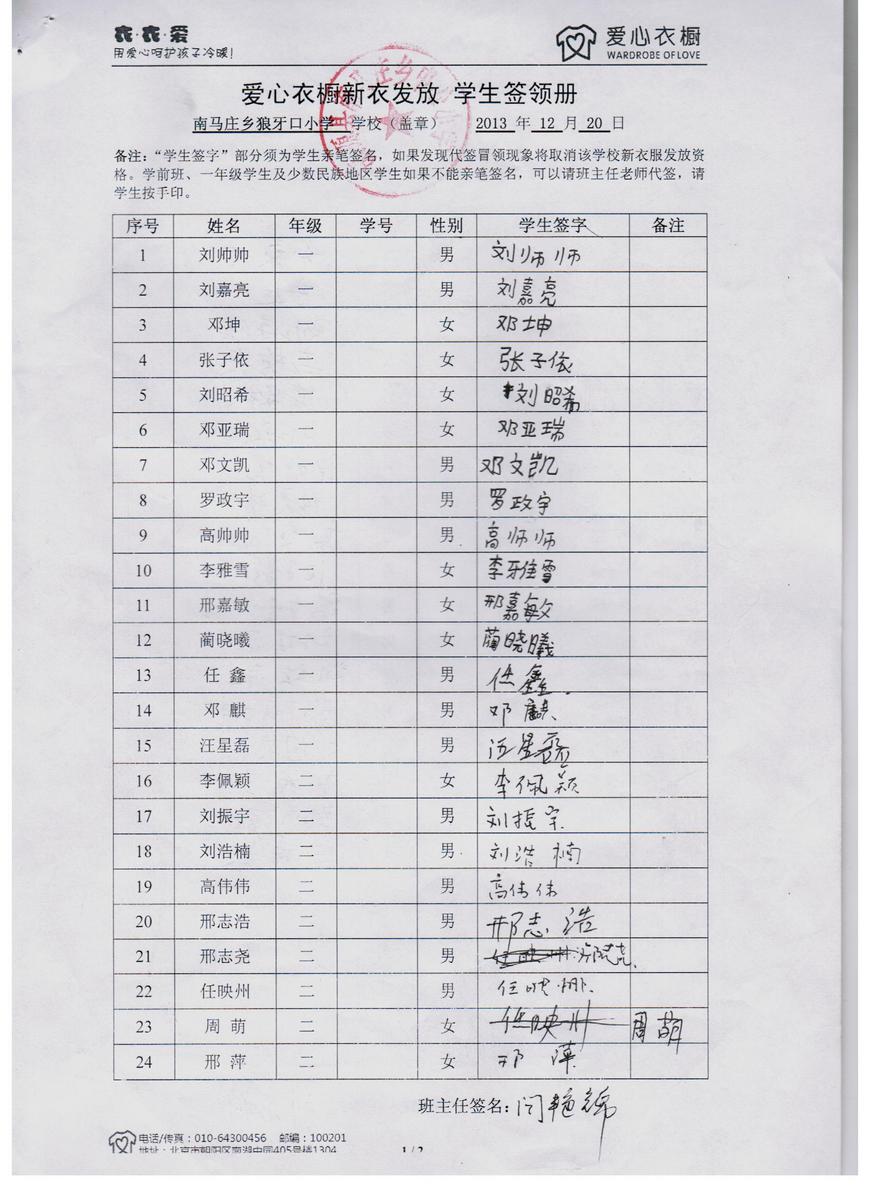 衣·衣·爱
用爱心呵护孩子冷暖!
爱心衣橱
WARDROBE OF LOVE
爱心衣橱新衣发放 学生签领册
南马庄乡狼牙口小学 学校（盖章） 2013 年 12 月 20 日
备注：“学生签字”部分须为学生亲笔签名，如果发现代签冒领现象将取消该学校新衣服发放资
格。学前班、一年级学生及少数民族地区学生如果不能亲笔签名，可以请班主任老师代签，请
学生按手印。
序号 姓名 年级 学号 性别 学生签字 备注
1 刘帅帅 一 男 刘师师
2 刘嘉亮 一 男 刘嘉亮
3 邓坤 一 女 邓坤
4 张子依 一 女 张子依
5 刘昭希 一 女 刘昭希
6 邓亚瑞 一 女 邓亚瑞
7 邓文凯 一 男 邓文凯
8 罗政宇 一 男 罗政宇
9 高帅帅 一 男 高师师
10 李雅雪 一 女 李雅雪
11 邢嘉敏 一 女 邢嘉敏
12 蔺晓曦 一 女 蔺晓曦
13 任 鑫 一 男 任鑫
14 邓 麒 一 男 邓麒
15 汪星磊 一 男
16 李佩颖 二 女 李佩颖
17 刘振宇 二 男 刘振宇
18 刘浩楠 二 男 刘浩楠
19 高伟伟 二 男 高伟伟
20 邢志浩 二 男 邢志浩
21 邢志尧 二 男 邢志尧
22 任映州 二 男 任映州
23 周 萌 二 女 任映州 周萌
24 邢 萍 二 女 邢萍
班主任签名：闫艳锦
电话/传真：010-64300456 邮编：100201
地址：北京市朝阳区南湖中园405号楼1304
1 / 2